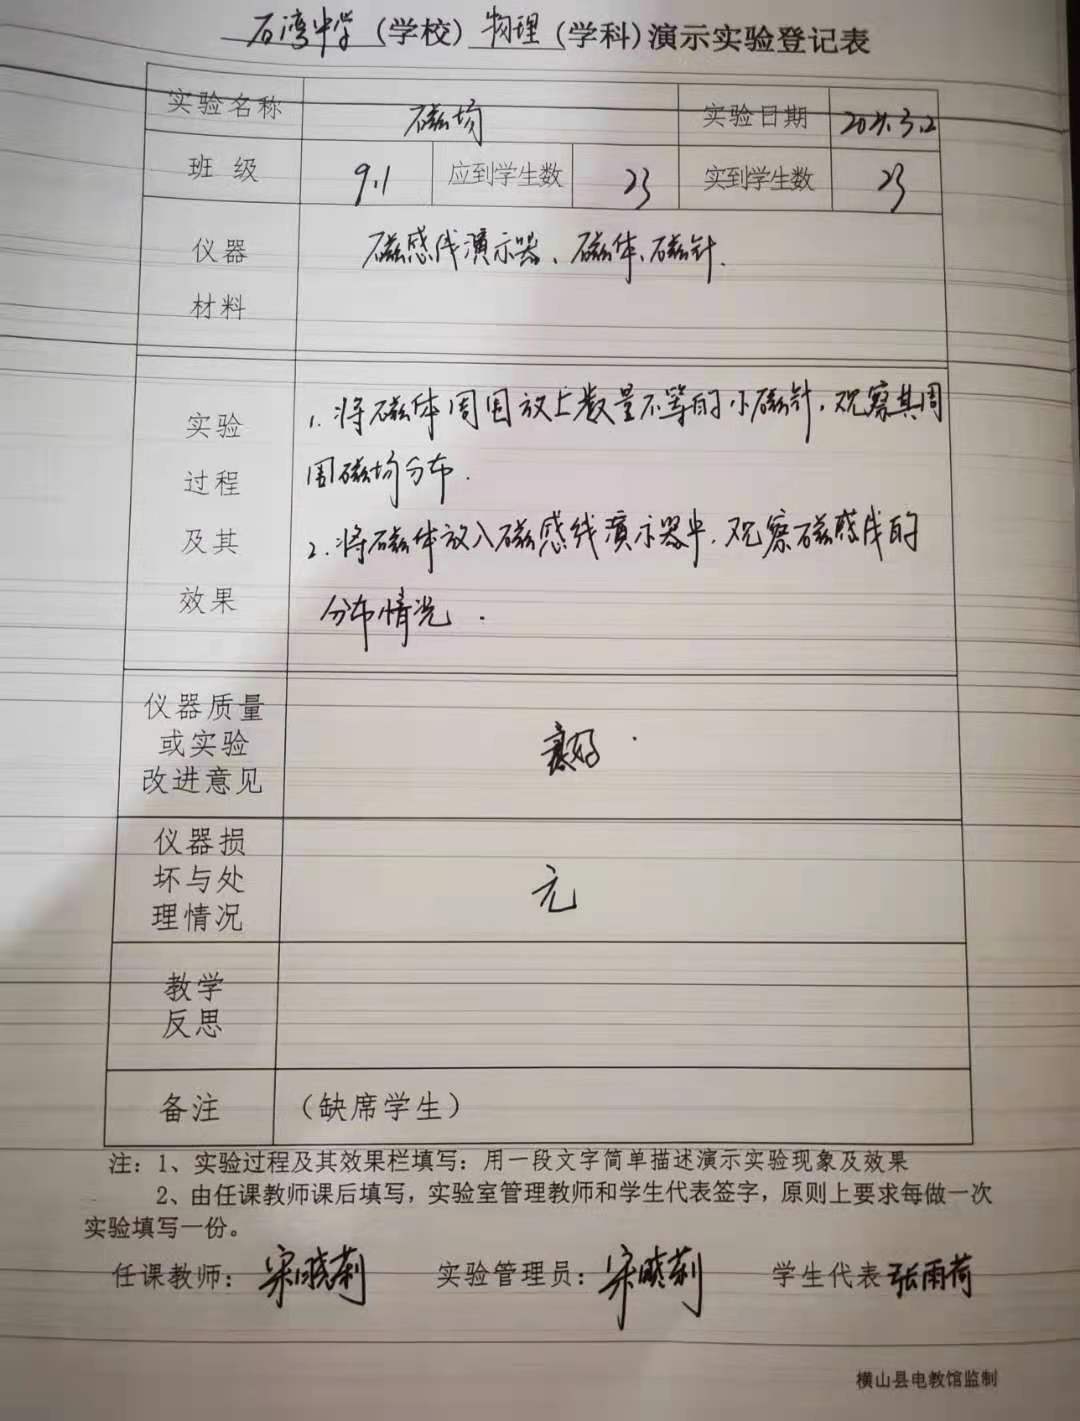 石湾中学(学校)物理(学科)演示实验登记表
实验名称 磁场 实验日期 2021.3.2
班 级 9.1 应到学生数 23 实到学生数 23
仪器
材料
磁感线演示器、磁体、磁针.
实验
过程
及其
效果
1.将磁体周围放上数量不等的小磁针,观察其周
围磁场分布.
2.将磁体放入磁感线演示器中,观察磁感线的
分布情况.
仪器质量
或实验
改进意见
良好.
仪器损
坏与处
理情况
无
教学
反思
备注 (缺席学生)
注:1、实验过程及其效果栏填写:用一段文字简单描述演示实验现象及效果
2、由任课教师课后填写,实验室管理教师和学生代表签字,原则上要求每做一次
实验填写一份。
任课教师:宋晓莉 实验管理员:宋晓莉 学生代表 张雨荷
横山县电教馆监制